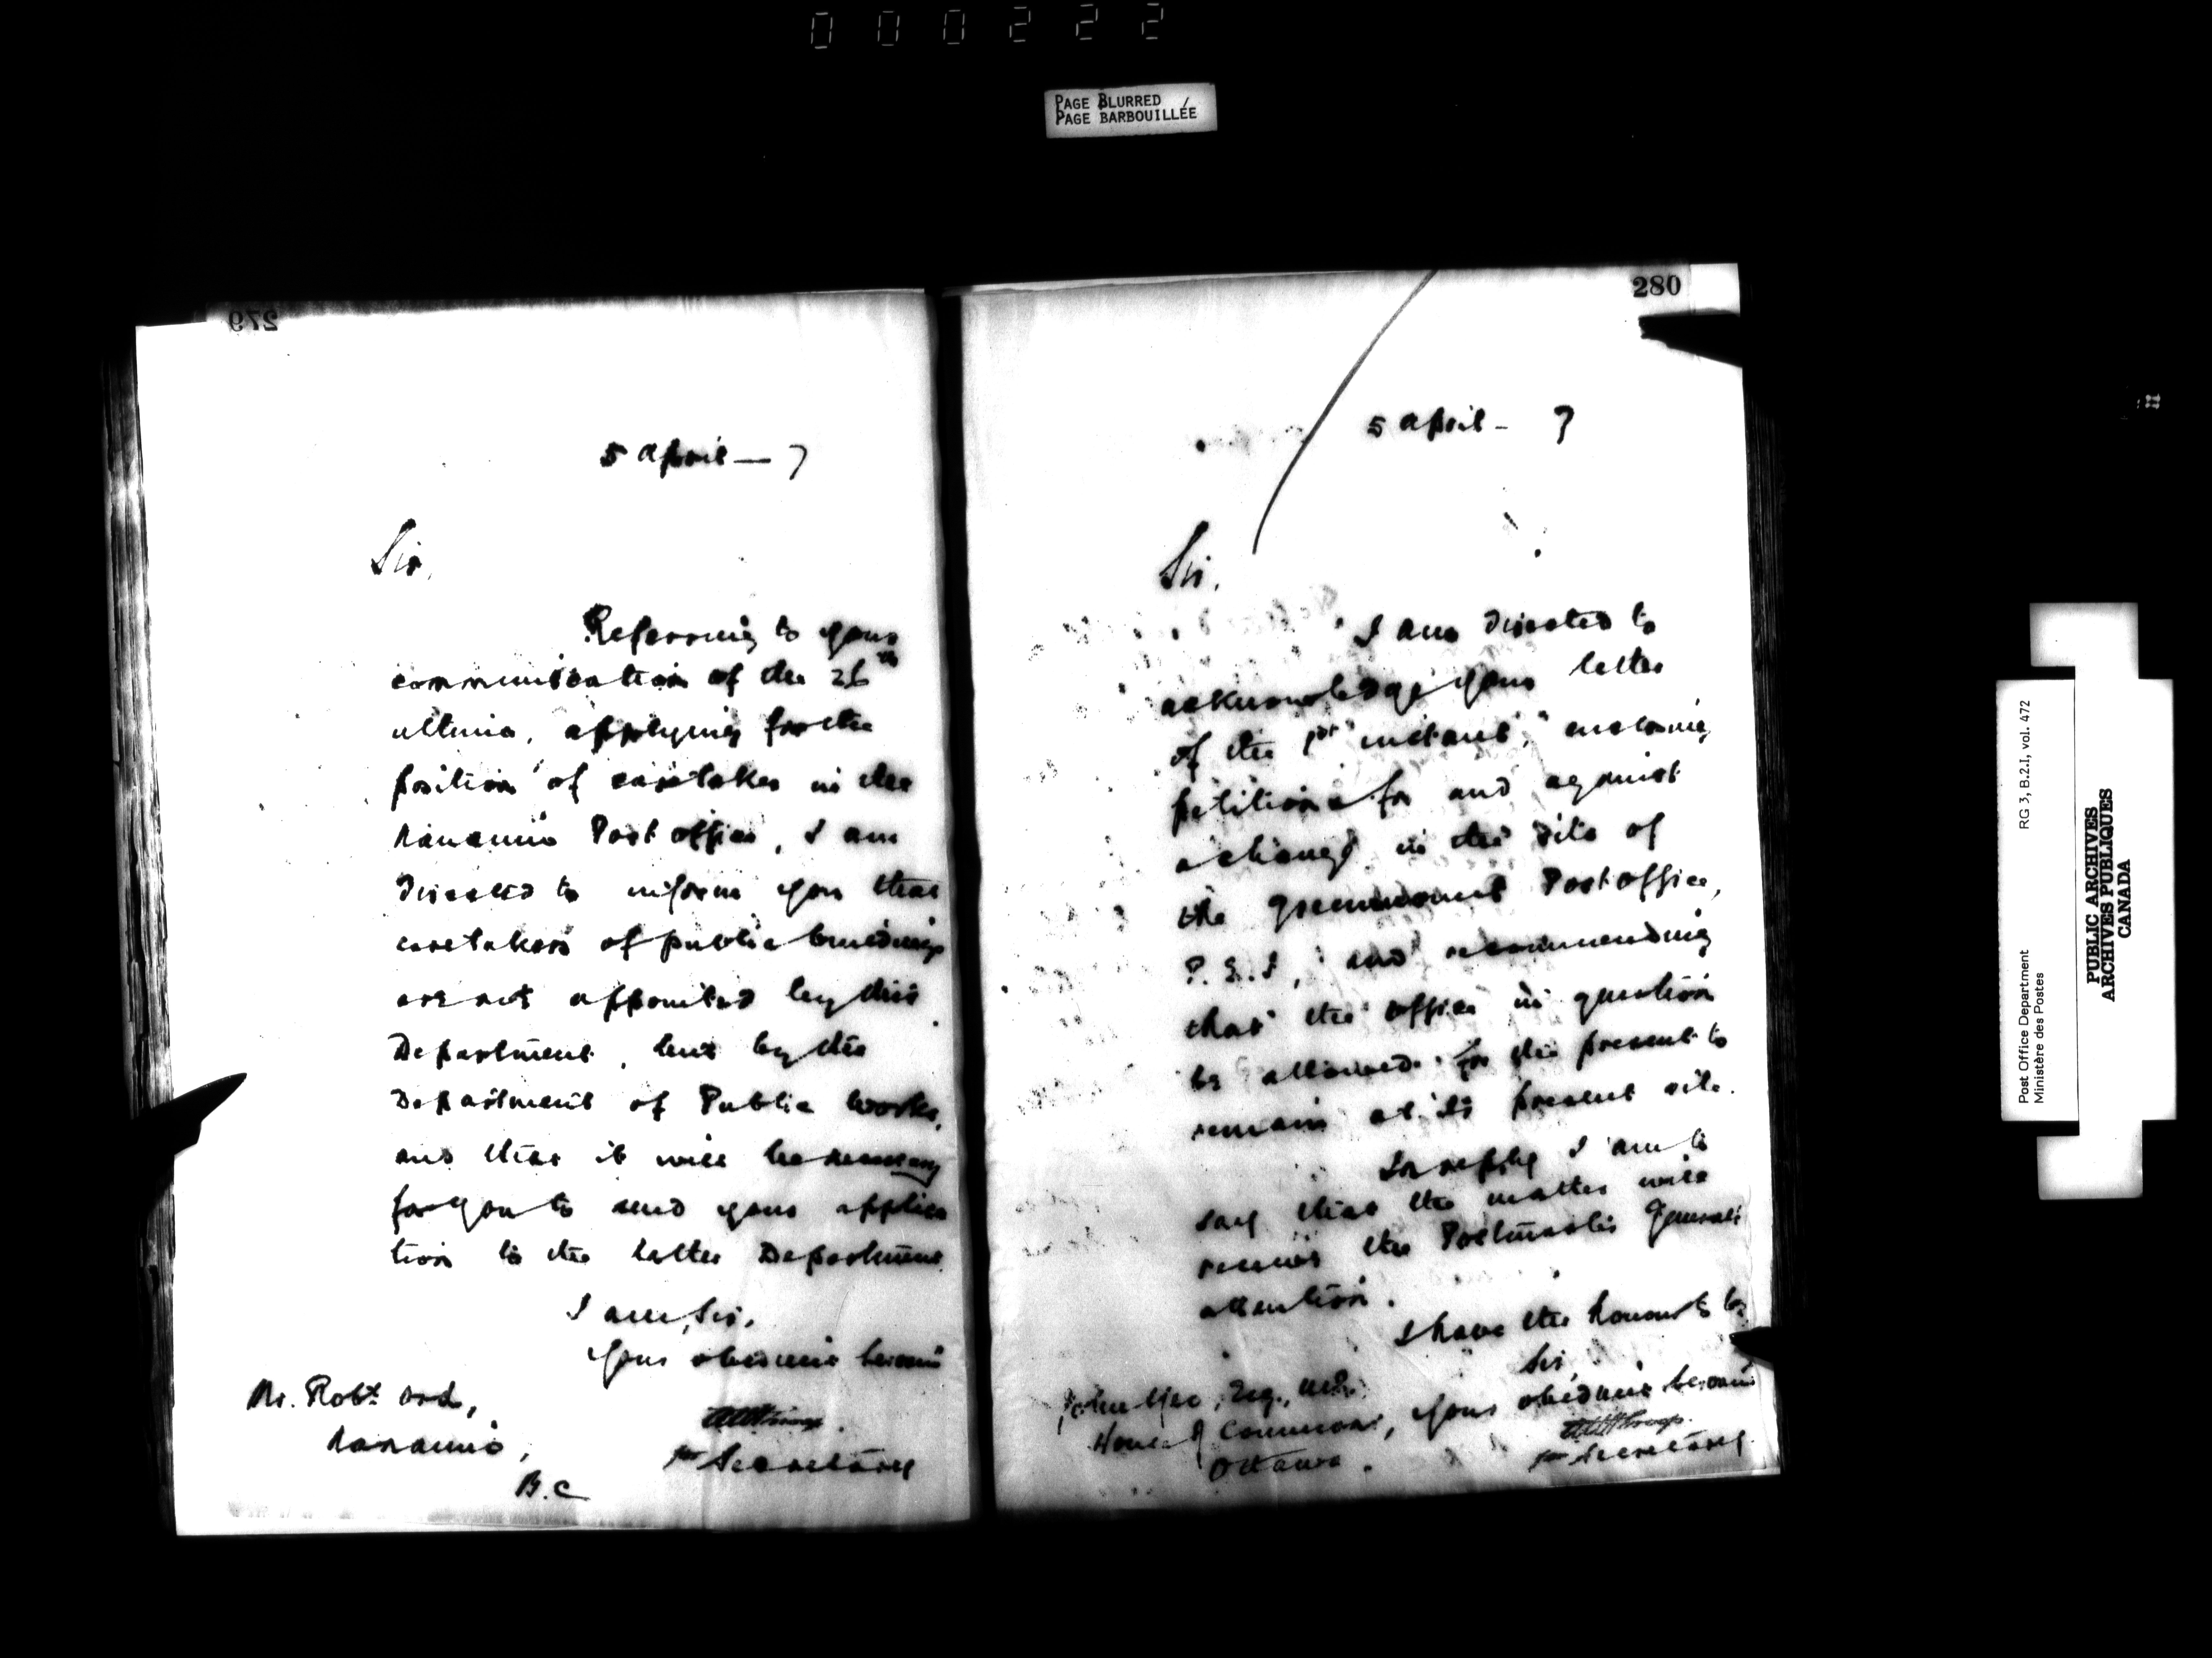 000222
PAGE BLURRED
PAGE BARBOUILLÉE
279
5 April — 7
Sir,
Referring to your
communication of the 26th
ultimo, applying for the
position of caretaker in the
Nanaimo Post office, I am
directed to inform you that
caretakers of public buildings
are not appointed by this
Department, but by the
Department of Public Works,
and that it will be necessary
for you to send your applica
tion to the latter Department.
I am, Sir,
Your obedient Servant
for Secretary
Mr. Robt. Ord,
Nanaimo,
B.C
280
5 April - 7
Sir,
I am directed to
acknowledge your letter
of the 1st instant, enclosing
petitions for and against
a change in the site of
the Greenmount Post office,
P.E.I, and recommending
that the office in question
be allowed for the present to
remain at its present site.
In reply I am to
say that the matter will
receive the Postmaster General's
attention.
I have the honour to be
Sir,
Your obedient Servant
for Secretary
John Yeo, Esq., M.P.
House of Commons,
Ottawa.
Post Office Department
Ministère des Postes
RG 3, B.2.I, vol. 472
PUBLIC ARCHIVES
ARCHIVES PUBLIQUES
CANADA